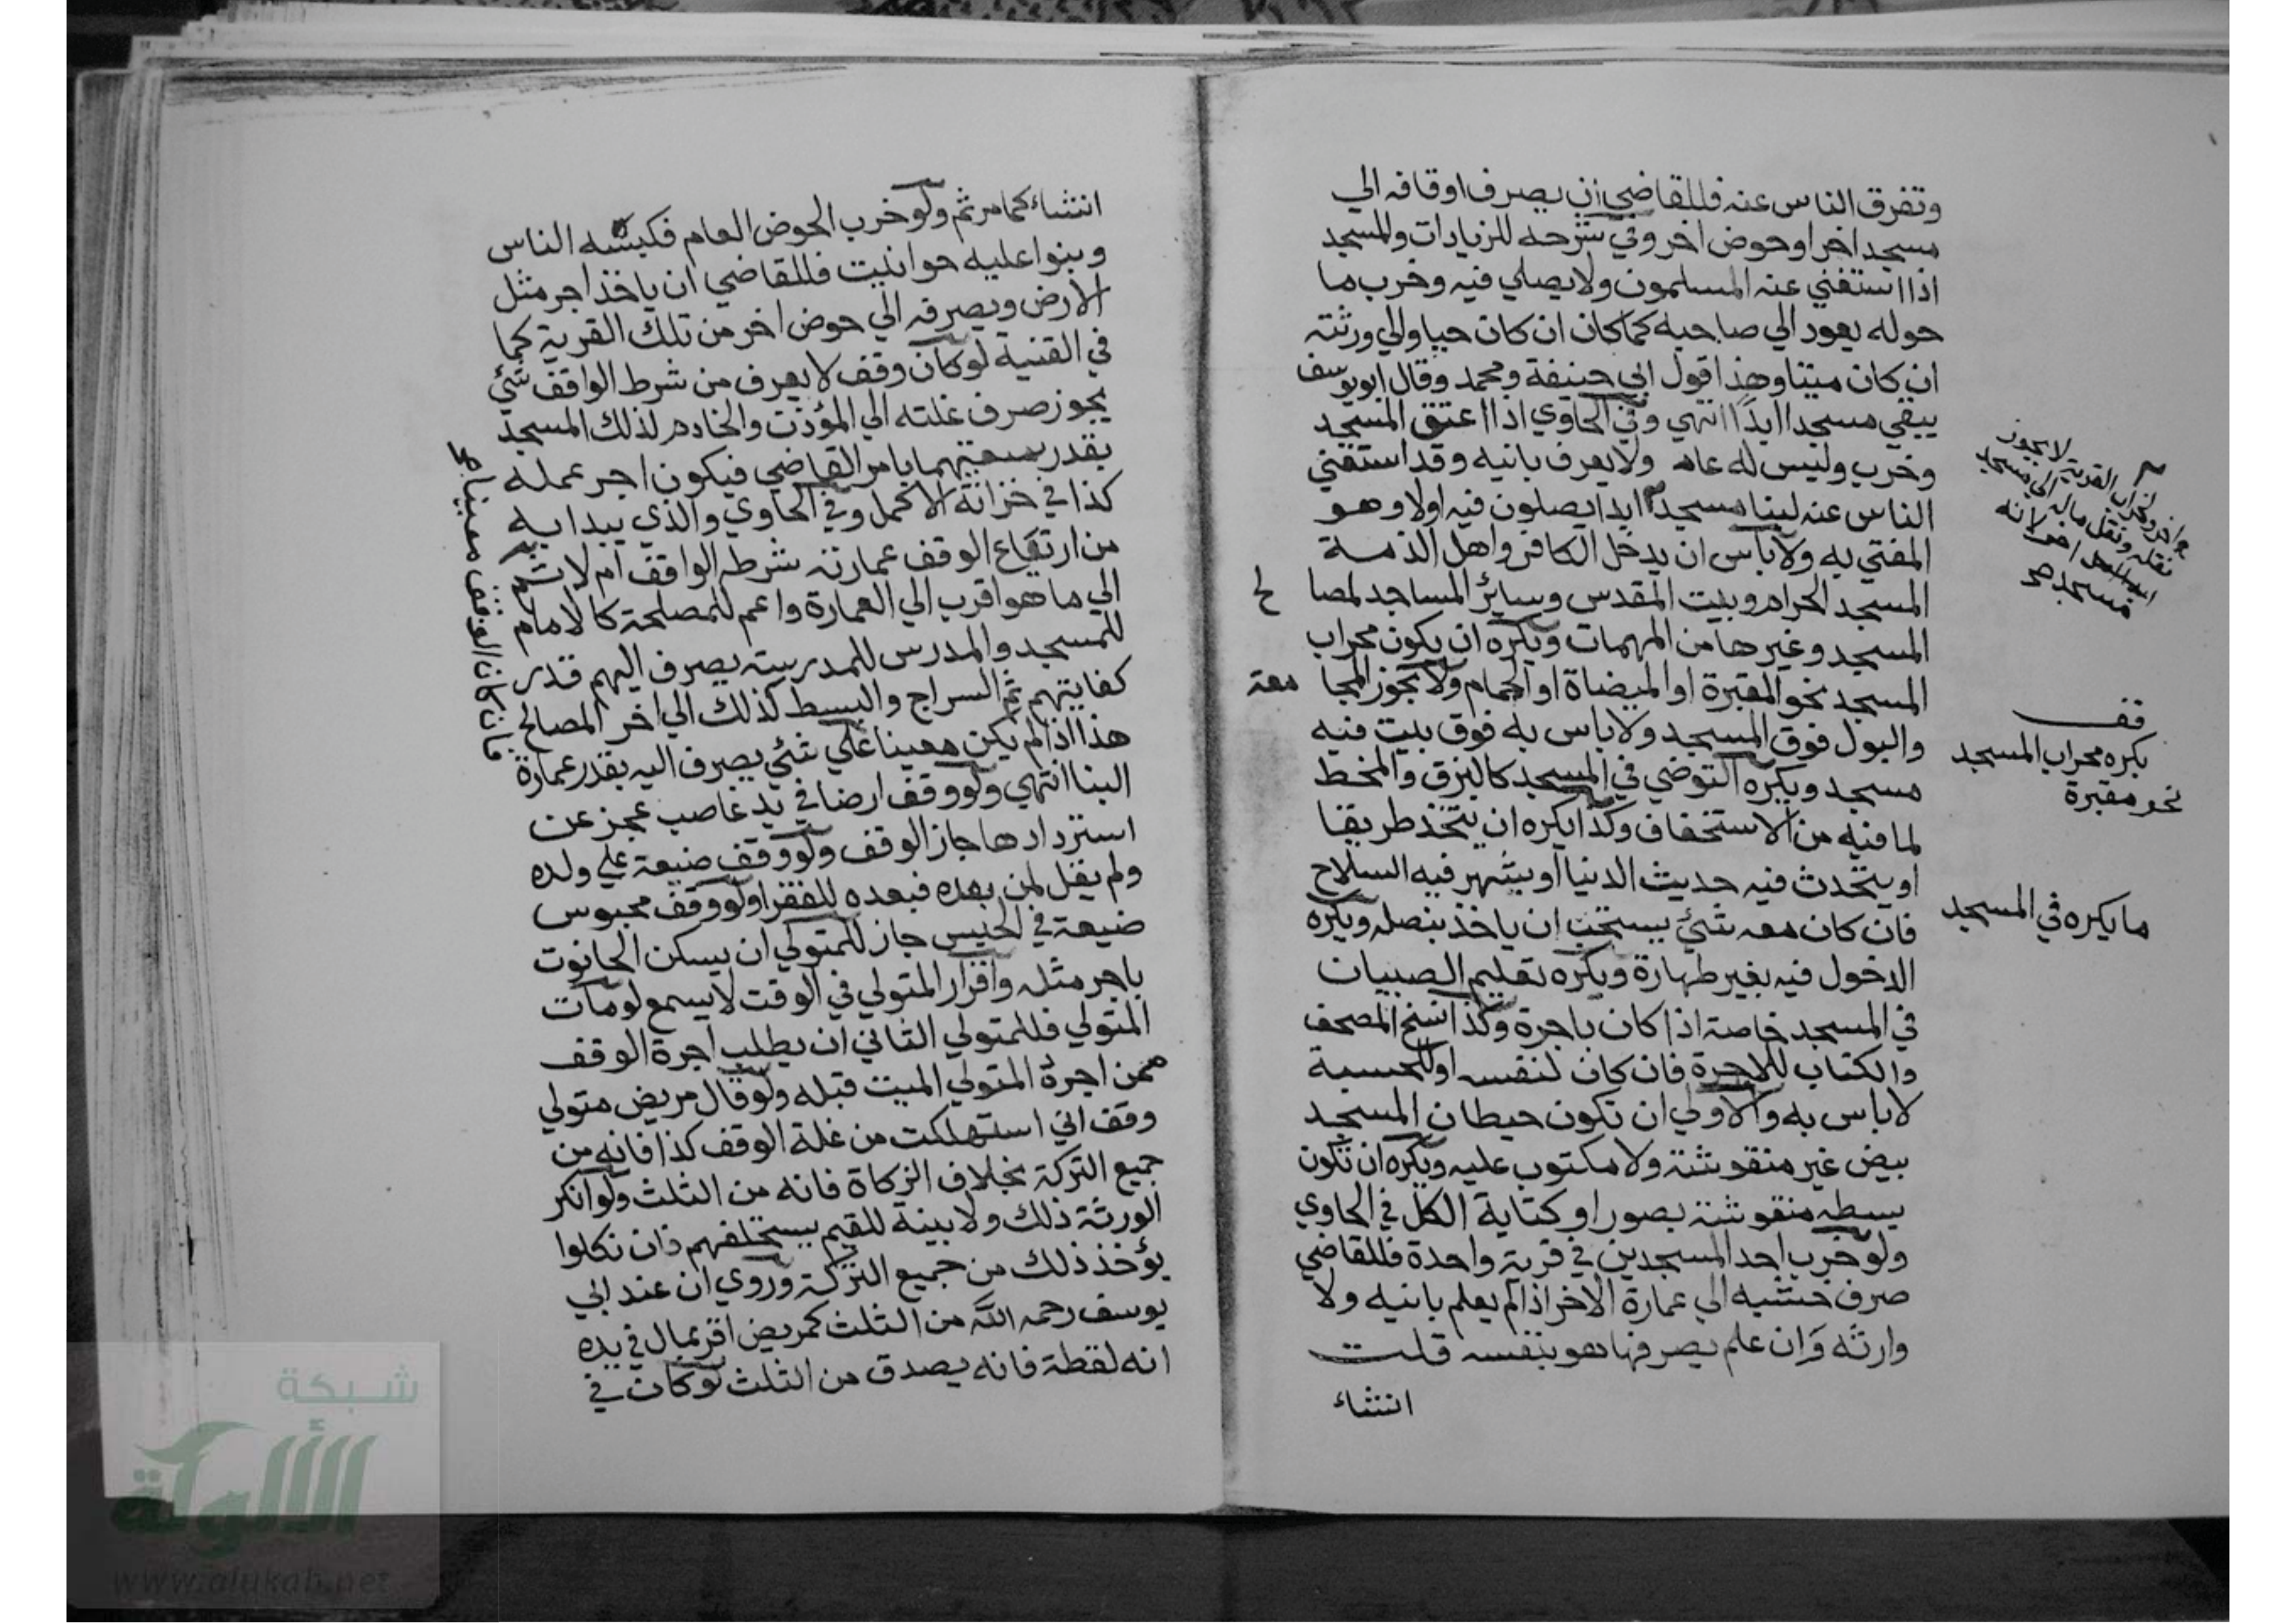 وتفرق الناس عنه فللقاضي ان يصرف اوقافه الي
مسجد اخر او حوض اخر وفي شرحه للزيادات والمسجد
اذا استغني عنه المسلمون ولا يصلي فيه وخرب ما
حوله يعود الي صاحبه كما كان ان كان حيا والي ورثته
ان كان ميتا وهذا قول ابي حنيفة ومحمد وقال ابويوسف
يبقي مسجدا ابدًا انتهي وفي الحاوي اذا اعتق المسجد
وخرب وليس له عام ولا يعرف بانيه وقد استغني
الناس عنه لبنا مسجد ابدا يصلون فيه اولا وهو
المفتي به ولا باس ان يدخل الكافر واهل الذمة
المسجد الحرام وبيت المقدس وسائر المساجد لمصا لح
المسجد وغيرها من المهمات ويكره ان يكون محراب
المسجد نحو المقبرة او الميضاة او الحمام ولا يجوز المجا معة
والبول فوق المسجد ولا باس به فوق بيت فيه
مسجد ويكره التوضي في المسجد كالبزق والمخط
لما فيه من الاستخفاف وكذا يكره ان يتخذ طريقا
او يتحدث فيه حديث الدنيا او يشهر فيه السلاح
فان كان معه شئ يستحب ان ياخذ بنصله ويكره
الدخول فيه بغير طهارة ويكره تعليم الصبيان
في المسجد خاصة اذا كان باجرة وكذا نسخ المصحف
والكتاب للاجرة فان كان لنفسه او للحسبة
لا باس به والاولي ان تكون حيطان المسجد
بيض غير منقوشة ولا مكتوب عليه ويكره ان تكون
بسطه منقوشة بصور او كتابة الكل في الحاوي
ولو خرب احد المسجدين في قرية واحدة فللقاضي
صرف خشبه الي عمارة الاخر اذا لم يعلم بانيه ولا
وارثه وان علم يصرفها هو بنفسه قلت
انشاء
لا يجوز
نقله ونقل ماله الي مسجد
اخر
مسجد صح
قف
يكره محراب المسجد
نحو مقبرة
ما يكره في المسجد
انشاء كما مر ثم ولو خرب الحوض العام فكبسه الناس
وبنوا عليه حوانيت فللقاضي ان ياخذ اجر مثل
الارض ويصرفه الي حوض اخر من تلك القرية كما
في القنية لو كان وقف لا يعرف من شرط الواقف شئ
يجوز صرف غلته الي المؤذن والخادم لذلك المسجد
بقدر سعيهما بامر القاضي فيكون اجر عمله
كذا في خزانة الاكمل وفي الحاوي والذي يبدا به
من ارتفاع الوقف عمارته شرط الواقف ام لا ثم
الي ما هو اقرب الي العمارة واعم للمصلحة كالامام
للمسجد والمدرس للمدرسة يصرف اليهم قدر
كفايتهم ثم السراج والبسط كذلك الي اخر المصالح
هذا اذا لم يكن معينا علي شئ يصرف اليه بقدر عمارة
البنا انتهي ولو وقف ارضا في يد غاصب عجز عن
استردادها جاز الوقف ولو وقف ضيعة علي ولده
ولم يقل لمن بعده فبعده للفقرا ولو وقف محبوس
ضيعة في الحبس جاز للمتولي ان يسكن الحانوت
باجر مثله واقرار المتولي في الوقت لا يسمع لو مات
المتولي فللمتولي الثاني ان يطلب اجرة الوقف
ممن اجره المتولي الميت قبله ولو قال مريض متولي
وقف اني استهلكت من غلة الوقف كذا فانه من
جميع التركة بخلاف الزكاة فانه من الثلث ولو انكر
الورثة ذلك ولا بينة للقيم يستحلفهم فان نكلوا
يؤخذ ذلك من جميع التركة وروي ان عند ابي
يوسف رحمه الله من الثلث كمريض اقر بمال في يده
انه لقطة فانه يصدق من الثلث لو كان في
فان كان الوقف معينا صح
شبكة
الألوكة
www.alukah.net